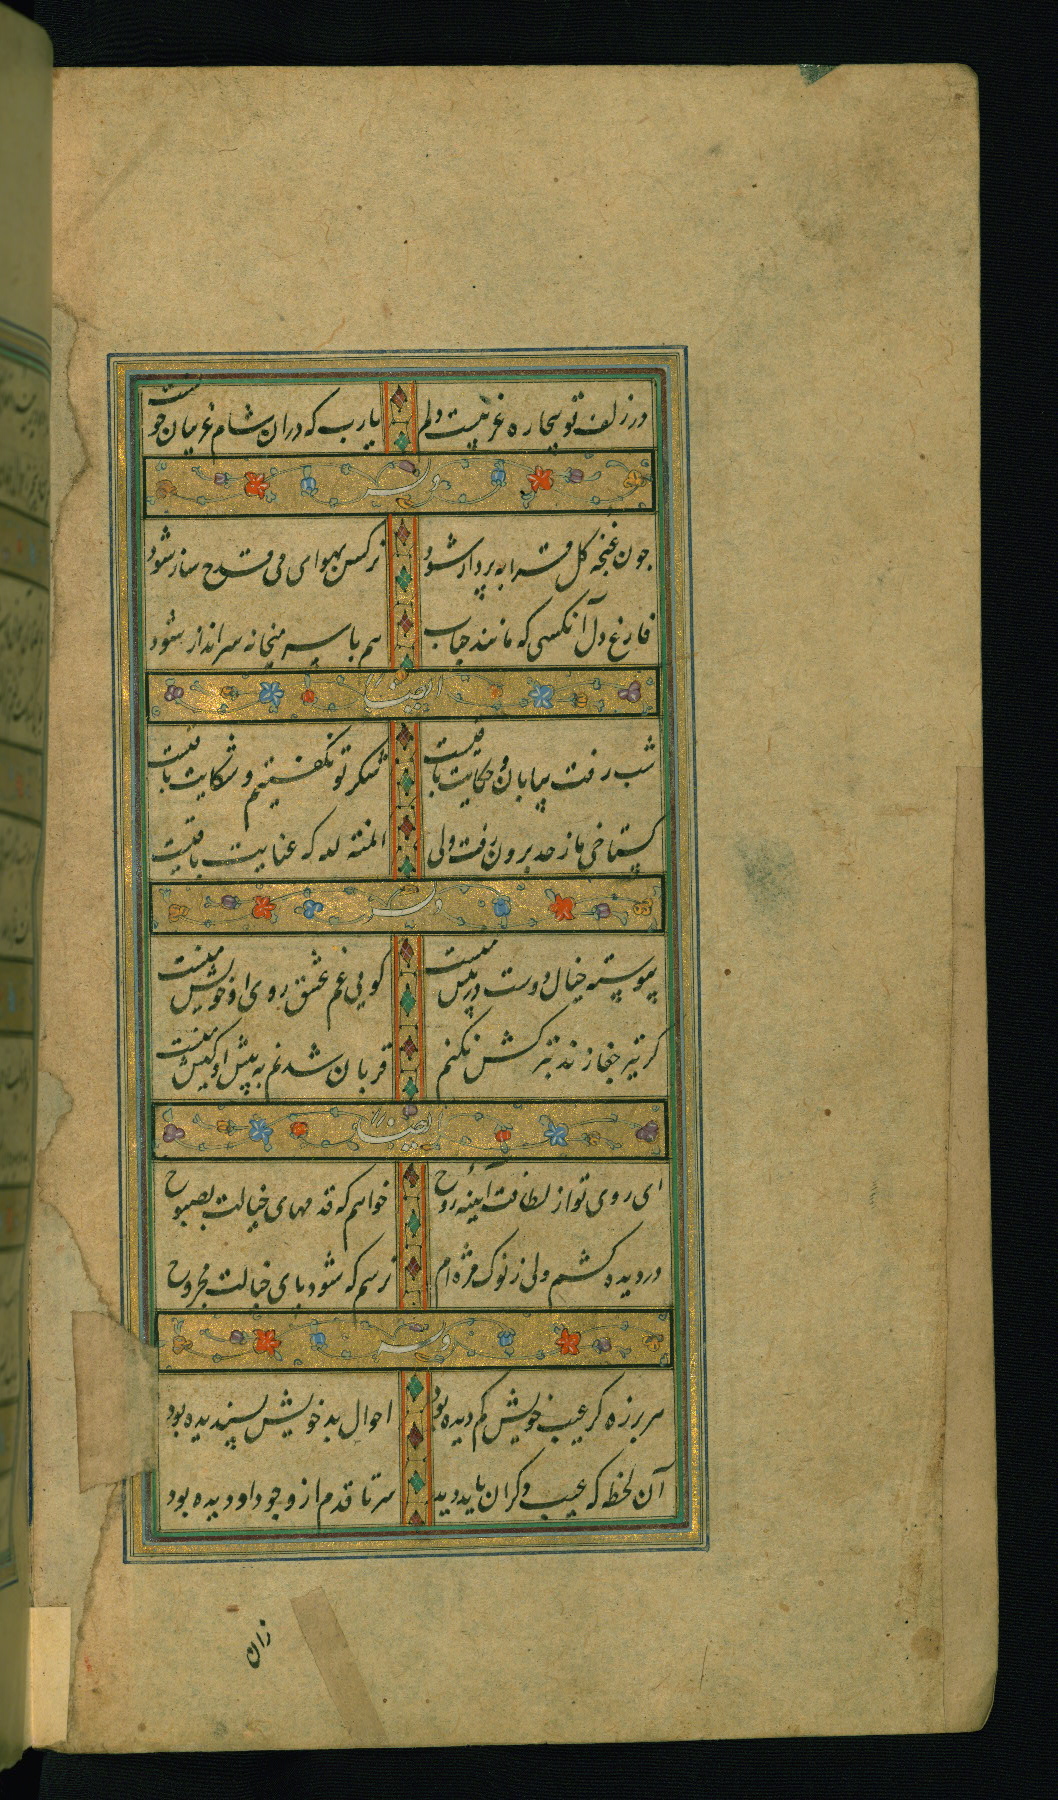 در زلف تو بیچاره غریبیست دلم یارب که دران شام غریبان چونست
وله
چون غنچه گل قرابه پرداز شود نرکس بهوای می قدح ساز شود
فارغ دل آنکسی که مانند حباب هم با سر میخانه سرانداز شود
ایضا
شب رفت بپایان و حکایت باقیست شکر تو نکفتیم و شکایت باقیست
کستاخی ما ز حد برون رفت ولی المنة لله که عنایت باقیست
وله
پیوسته خیال دوست در پیش منست کویی غم عشق روی او خویش منست
کر تیر جفا زند تیر کش نکنم قربان شدنم به پیش او کیش منست
ایضا
ای روی تو از لطافت آیینه روح خواهم که قدمهای خیالت بصبوح
در دیده کشم ولی ز نوک مژه ام ترسم که شود پای خیالت مجروح
وله
هر بزه کر عیب خویش کم دیده بود احوال بد خویش پسندیده بود
آن لحظه که عیب دکران باید دید سر تا قدم از وجود او دیده بود
زان